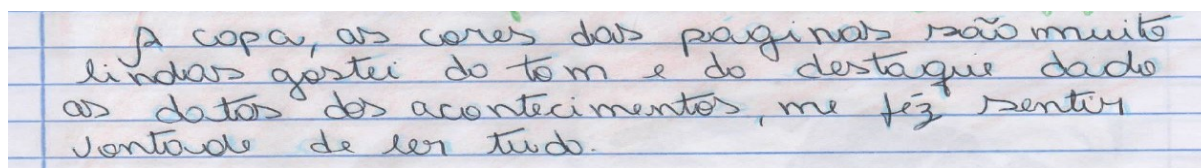 A copa, as cores das páginas são muito
lindas gostei do tom e do destaque dado
as datas dos acontecimentos, me féz sentir
vontade de ler tudo.